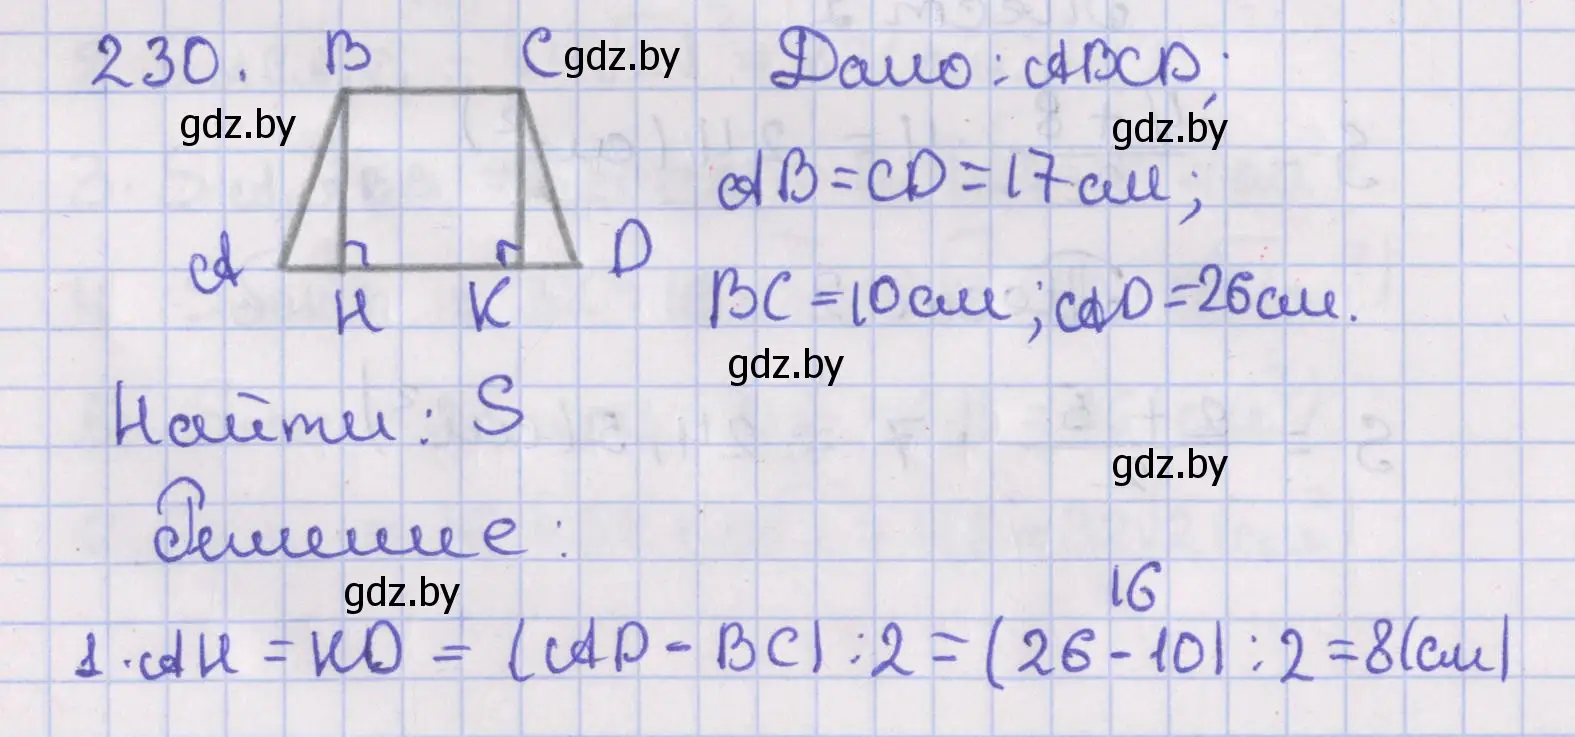 230. B C gdz.by Дано: ABCD;
gdz.by gdz.by
AB = CD = 17 см;
A H K D
BC = 10 см; AD = 26 см.
gdz.by
Найти: S
gdz.by
Решение:
gdz.by
16
1. AH = KD = (AD - BC) : 2 = (26 - 10) : 2 = 8 (см)